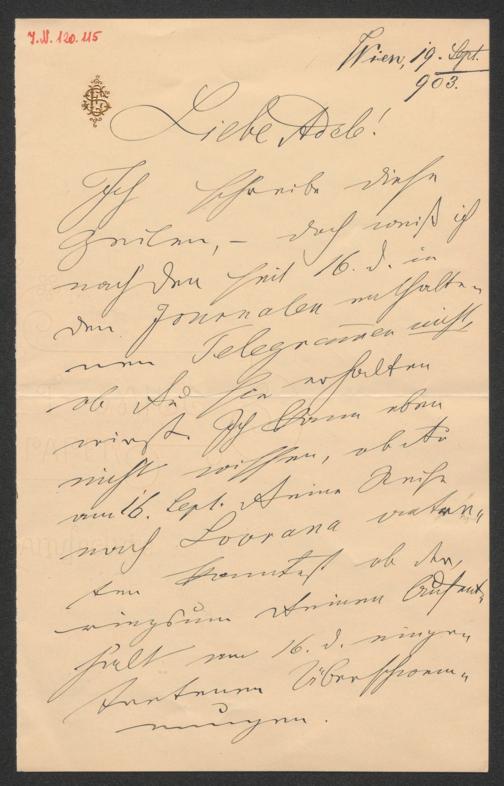 J.N. 120.115
Wien, 19. Sept.
903.
Liebe Adele!
Ich schreibe diese
Zeilen, – doch weiß ich
nach den seit 16. d. in
den Journalen enthalte-
nen Telegrammen nicht,
ob Du sie erhalten
wirst. Ich kann eben
nicht wissen, ob Du
am 16. Sept. Deine Reise
nach Lovrana antre-
ten konntest ob der,
ringsum Deinen Aufent-
halt am 16. d. einge-
tretenen Überschwem-
mungen.